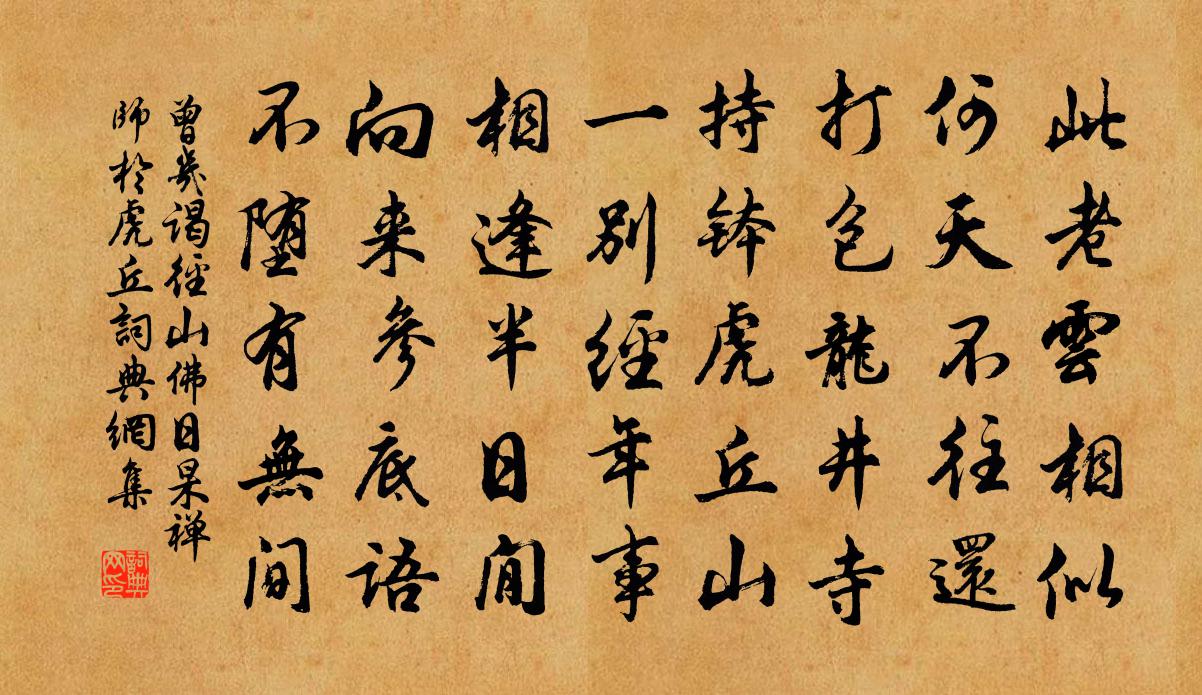 此老雲相似
何天不往還
打包龍井寺
持鉢虎丘山
一別經年事
相逢半日間
向来參底語
不堕有無間
曾幾謁徑山佛日杲禅
師於虎丘詞典網集
詞典网印